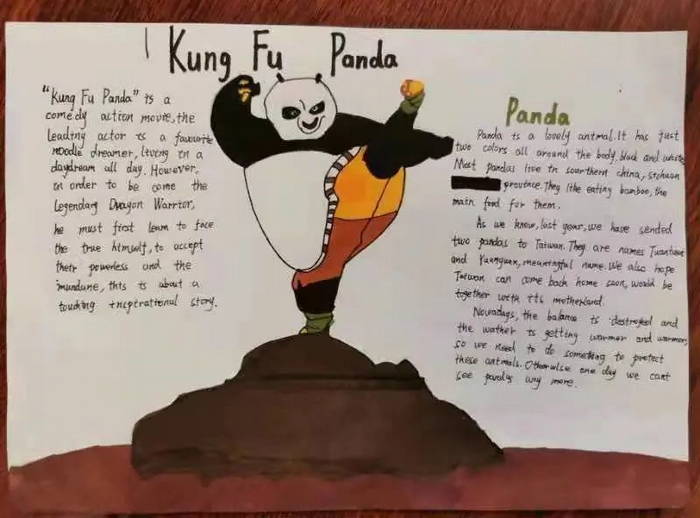 Kung Fu Panda
"Kung Fu Panda" is a
comedy action movie, the
leading actor is a favourite
noodle dreamer, living in a
daydream all day. However,
in order to be come the
Legendary Dragon Warrior,
he must first learn to face
the true himself, to accept
their powerless and the
mundane, this is about a
touching inspirational story.
Panda
Panda is a lovely animal. It has just
two colors all around the body, black and white.
Most pandas live in sourthern china, sichuan
province. They like eating bamboo, the
main food for them.
As we know, last year, we have sended
two pandas to Taiwan. They are names Tuantuan
and Yuanyuan, meaningful name. We also hope
Taiwan can come back home soon, would be
together with its motherland.
Nowadays, the balance is destroyed and
the wather is getting warmer and warmer,
so we need to do something to protect
these animals. Otherwise one day we cant
see pandas any more.